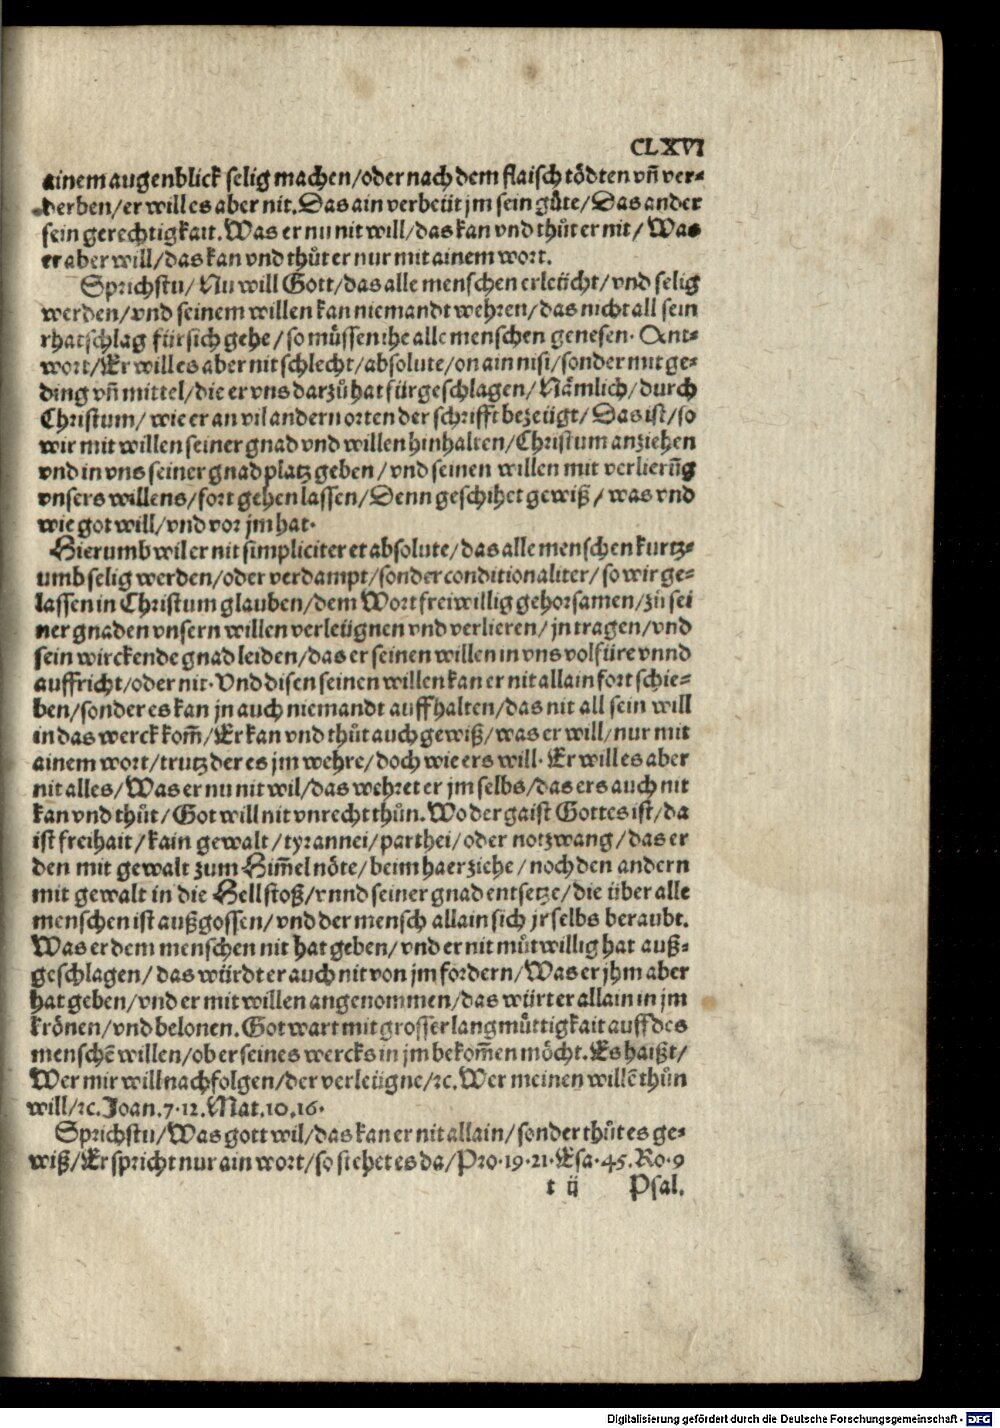 CLXVI
ainem augenblick selig machen/oder nach dem flaisch tödten vñ ver-
derben/er will es aber nit. Das ain verbeüt jm sein gůte/Das ander
sein gerechtigkait. Was er nu nit will/das kan vnd thůt er nit/Was
er aber will/das kan vnd thůt er nur mit ainem wort.
Sprichstu/Nu will Gott/das alle menschen erleücht/vnd selig
werden/vnd seinem willen kan niemandt wehren/das nicht all sein
rhatschlag für sich gehe/so müssen ihe alle menschen genesen. Ant-
wort/Er will es aber nit schlecht/absolute/on ain nisi/sonder mit ge-
ding vñ mittel/die er vns darzů hat fürgeschlagen/Nämlich/durch
Christum/wie er an vil andern orten der schrifft bezeügt/Das ist/so
wir mit willen seiner gnad vnd willen hinhalten/Christum anziehen
vnd in vns seiner gnad platz geben/vnd seinen willen mit verlierũg
vnsers willens/fort gehen lassen/Denn geschihet gewiß/was vnd
wie got will/vnd vor jm hat.
Hierumb wil er nit simpliciter et absolute/das alle menschen kurtz-
umb selig werden/oder verdampt/sonder conditionaliter/so wir ge-
lassen in Christum glauben/dem Wort freiwillig gehorsamen/zů sei
ner gnaden vnsern willen verleügnen vnd verlieren/jn tragen/vnd
sein wirckende gnad leiden/das er seinen willen in vns volfüre vnnd
auffricht/oder nit. Vnd disen seinen willen kan er nit allain fort schie-
ben/sonder es kan jn auch niemandt auffhalten/das nit all sein will
in das werck kom̃/Er kan vnd thůt auch gewiß/was er will/nur mit
ainem wort/trutz der es jm wehre/doch wie ers will. Er will es aber
nit alles/Was er nu nit wil/das wehret er jm selbs/das ers auch nit
kan vnd thůt/Got will nit vnrecht thůn. Wo der gaist Gottes ist/da
ist freihait/kain gewalt/tyrannei/parthei/oder notzwang/das er
den mit gewalt zum Him̃el nöte/beim haer ziehe/noch den andern
mit gewalt in die Hell stoß/vnnd seiner gnad entsetze/die über alle
menschen ist außgossen/vnd der mensch allain sich jr selbs beraubt.
Was er dem menschen nit hat geben/vnd er nit můtwillig hat auß-
geschlagen/das würdt er auch nit von jm fordern/Was er jhm aber
hat geben/vnd er mit willen angenommen/das würt er allain in jm
krönen/vnd belonen. Got wart mit grosser langmůttigkait auff des
menschẽ willen/ob er seines wercks in jm bekom̃en möcht. Es haißt/
Wer mir will nachfolgen/der verleügne/ꝛc. Wer meinen willẽ thůn
will/ꝛc. Joan.7.12. Mat.10.16.
Sprichstu/Was gott wil/das kan er nit allain/sonder thůt es ge-
wiß/Er spricht nur ain wort/so stehet es da/Pro.19.21. Esa.45. Ro.9
t ij Psal.
Digitalisierung gefördert durch die Deutsche Forschungsgemeinschaft - DFG